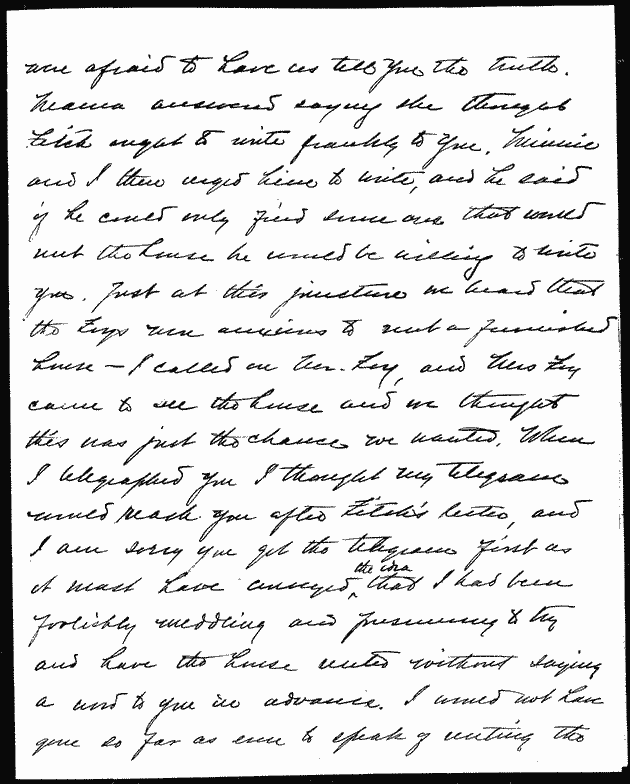 were afraid to have us tell you the truth.
Mama answered saying she thought
Fitch ought to write frankly to you. Minnie
and I then urged him to write, and he said
if he could only find some one that would
rent the house he would be willing to write
you. Just at this juncture we heard that
the Foys were anxious to rent a furnished
house – I called on Mr. Foy, and Mrs Foy
came to see the house and we thought
this was just the chance we wanted. When
I telegraphed you I thought my telegram
would reach you after Fitch's letter, and
I am sorry you got the telegram first as
it must have conveyed the idea that I had been
foolishly meddling and presuming to try
and have the house rented without saying
a word to you in advance. I would not have
gone so far as even to speak of renting the